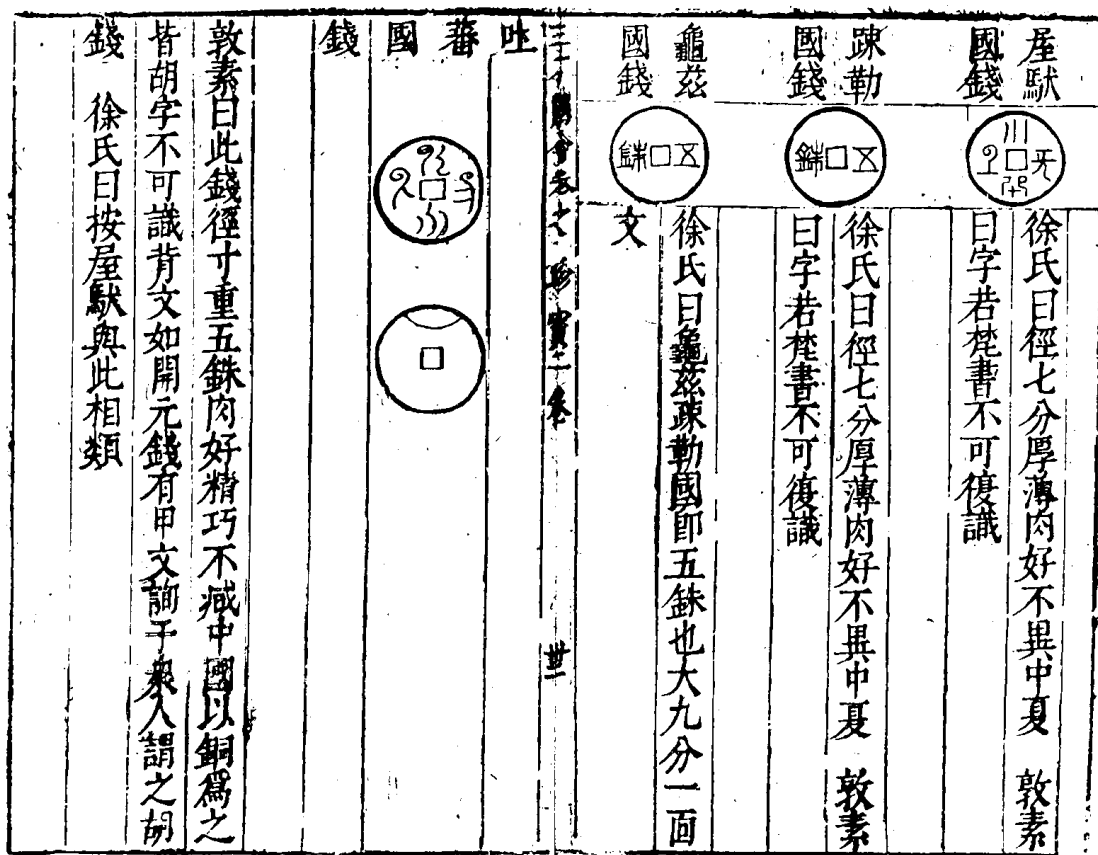 屋馱
國錢
徐氏曰徑七分厚薄肉好不異中夏 敦素
曰字若梵書不可復識
疎勒
國錢
五銖
徐氏曰徑七分厚薄肉好不異中夏 敦素
曰字若梵書不可復識
龜兹
國錢
五銖
徐氏曰龜兹疎勒國即五銖也大九分一面
文
三才圖會 珍寳二卷 丗一
吐蕃國錢
敦素曰此錢徑寸重五銖肉好精巧不减中國以銅爲之
皆胡字不可識背文如開元錢有甲文詢于衆人謂之胡
錢 徐氏曰按屋馱與此相類